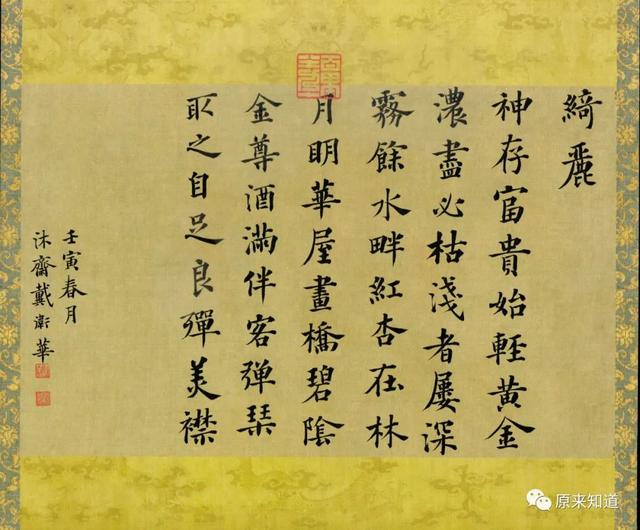 綺麗
神存富貴始輕黃金
濃盡必枯淺者屢深
霧餘水畔紅杏在林
月明華屋畫橋碧陰
金尊酒滿伴客彈琴
取之自足良殫美襟
壬寅春月
沐齋戴衛華
原来知道